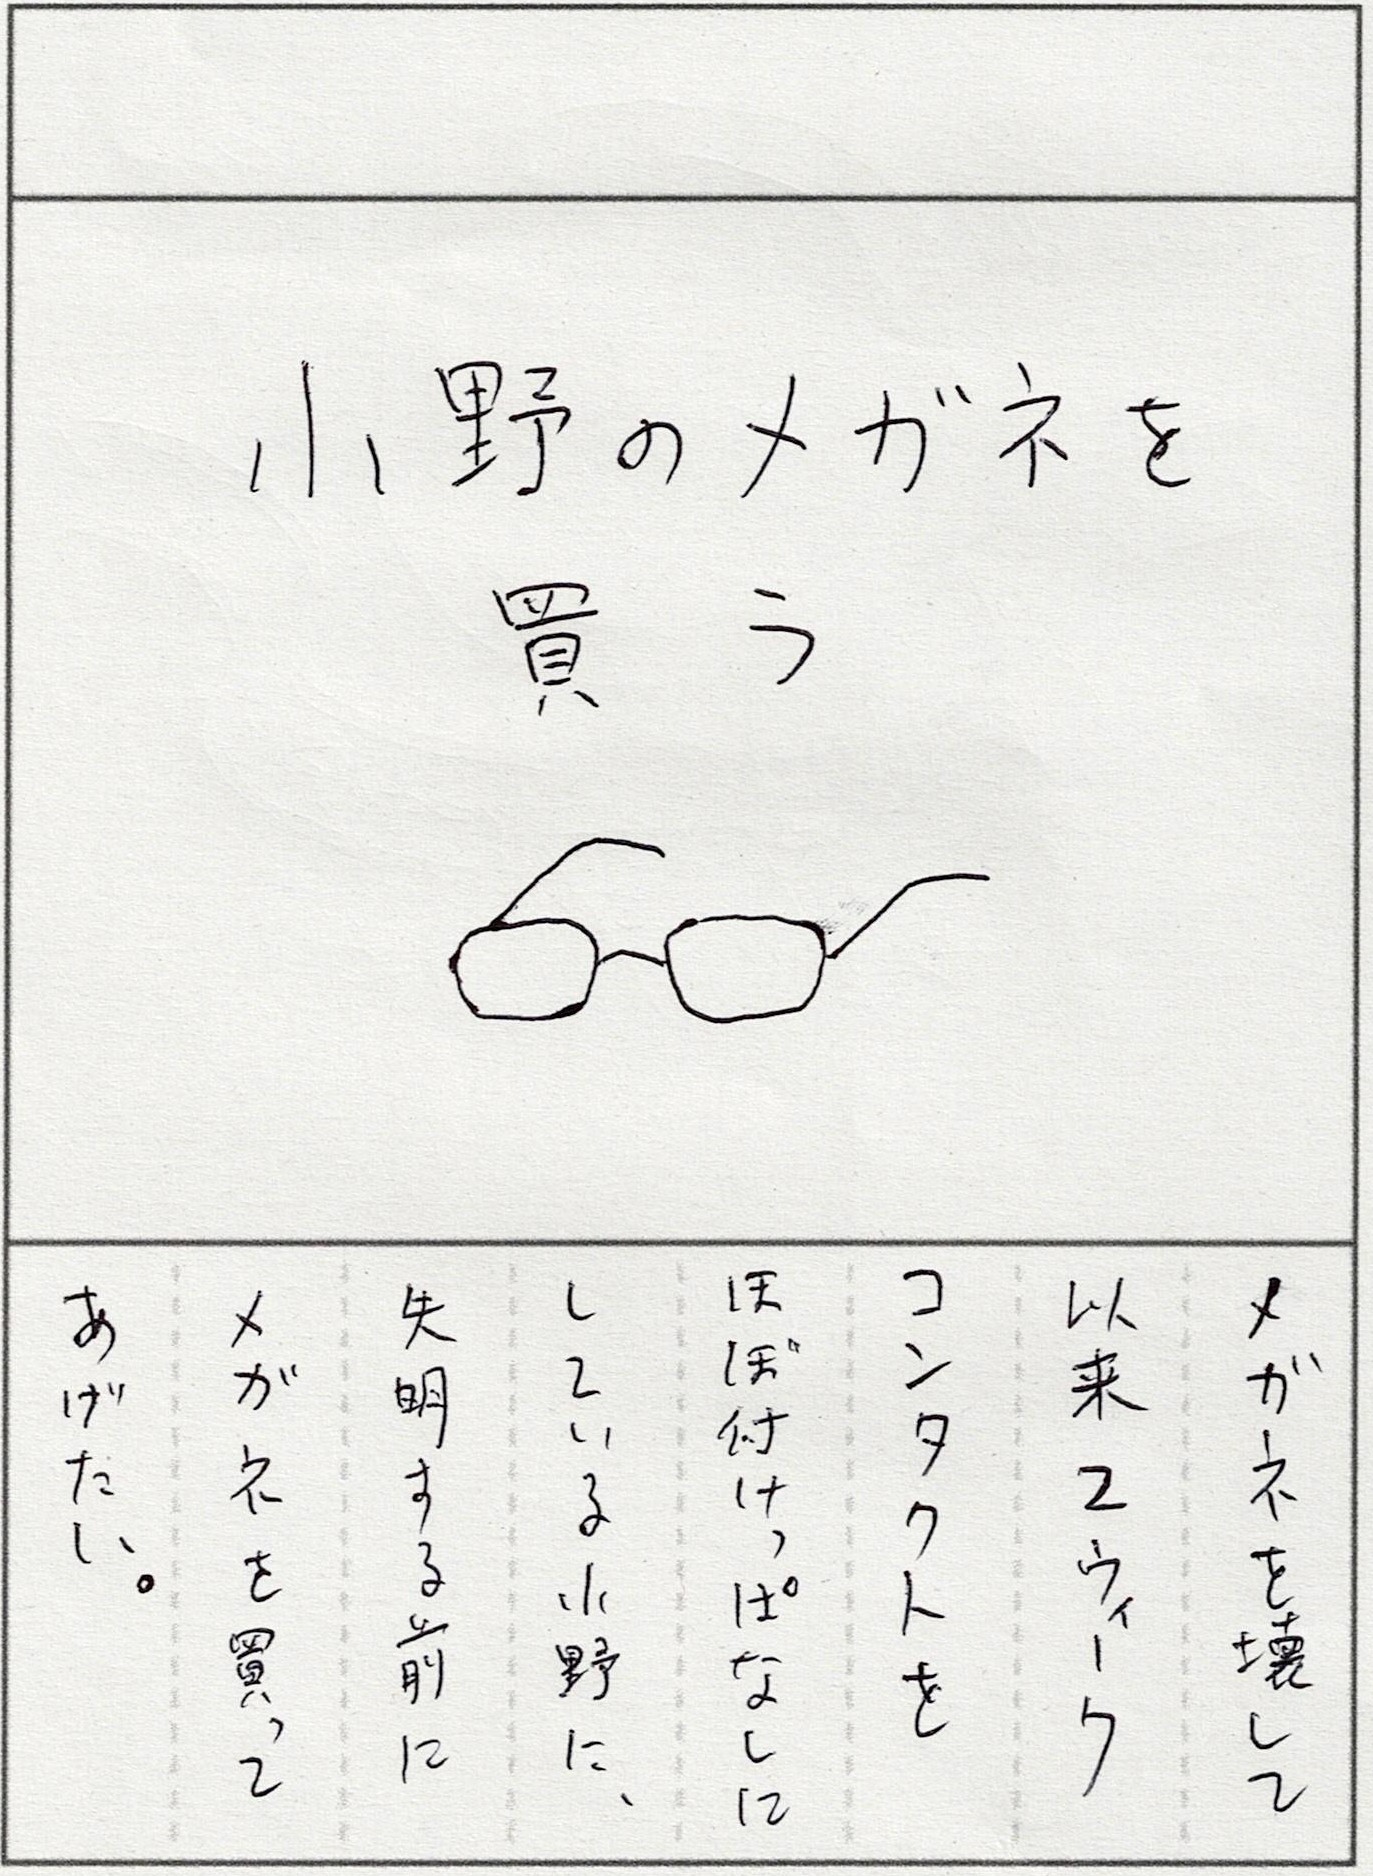 小野のメガネを
買う
メガネを壊して
以来2ウィーク
コンタクトを
ほぼ付けっぱなしに
している小野に、
失明する前に
メガネを買って
あげたい。